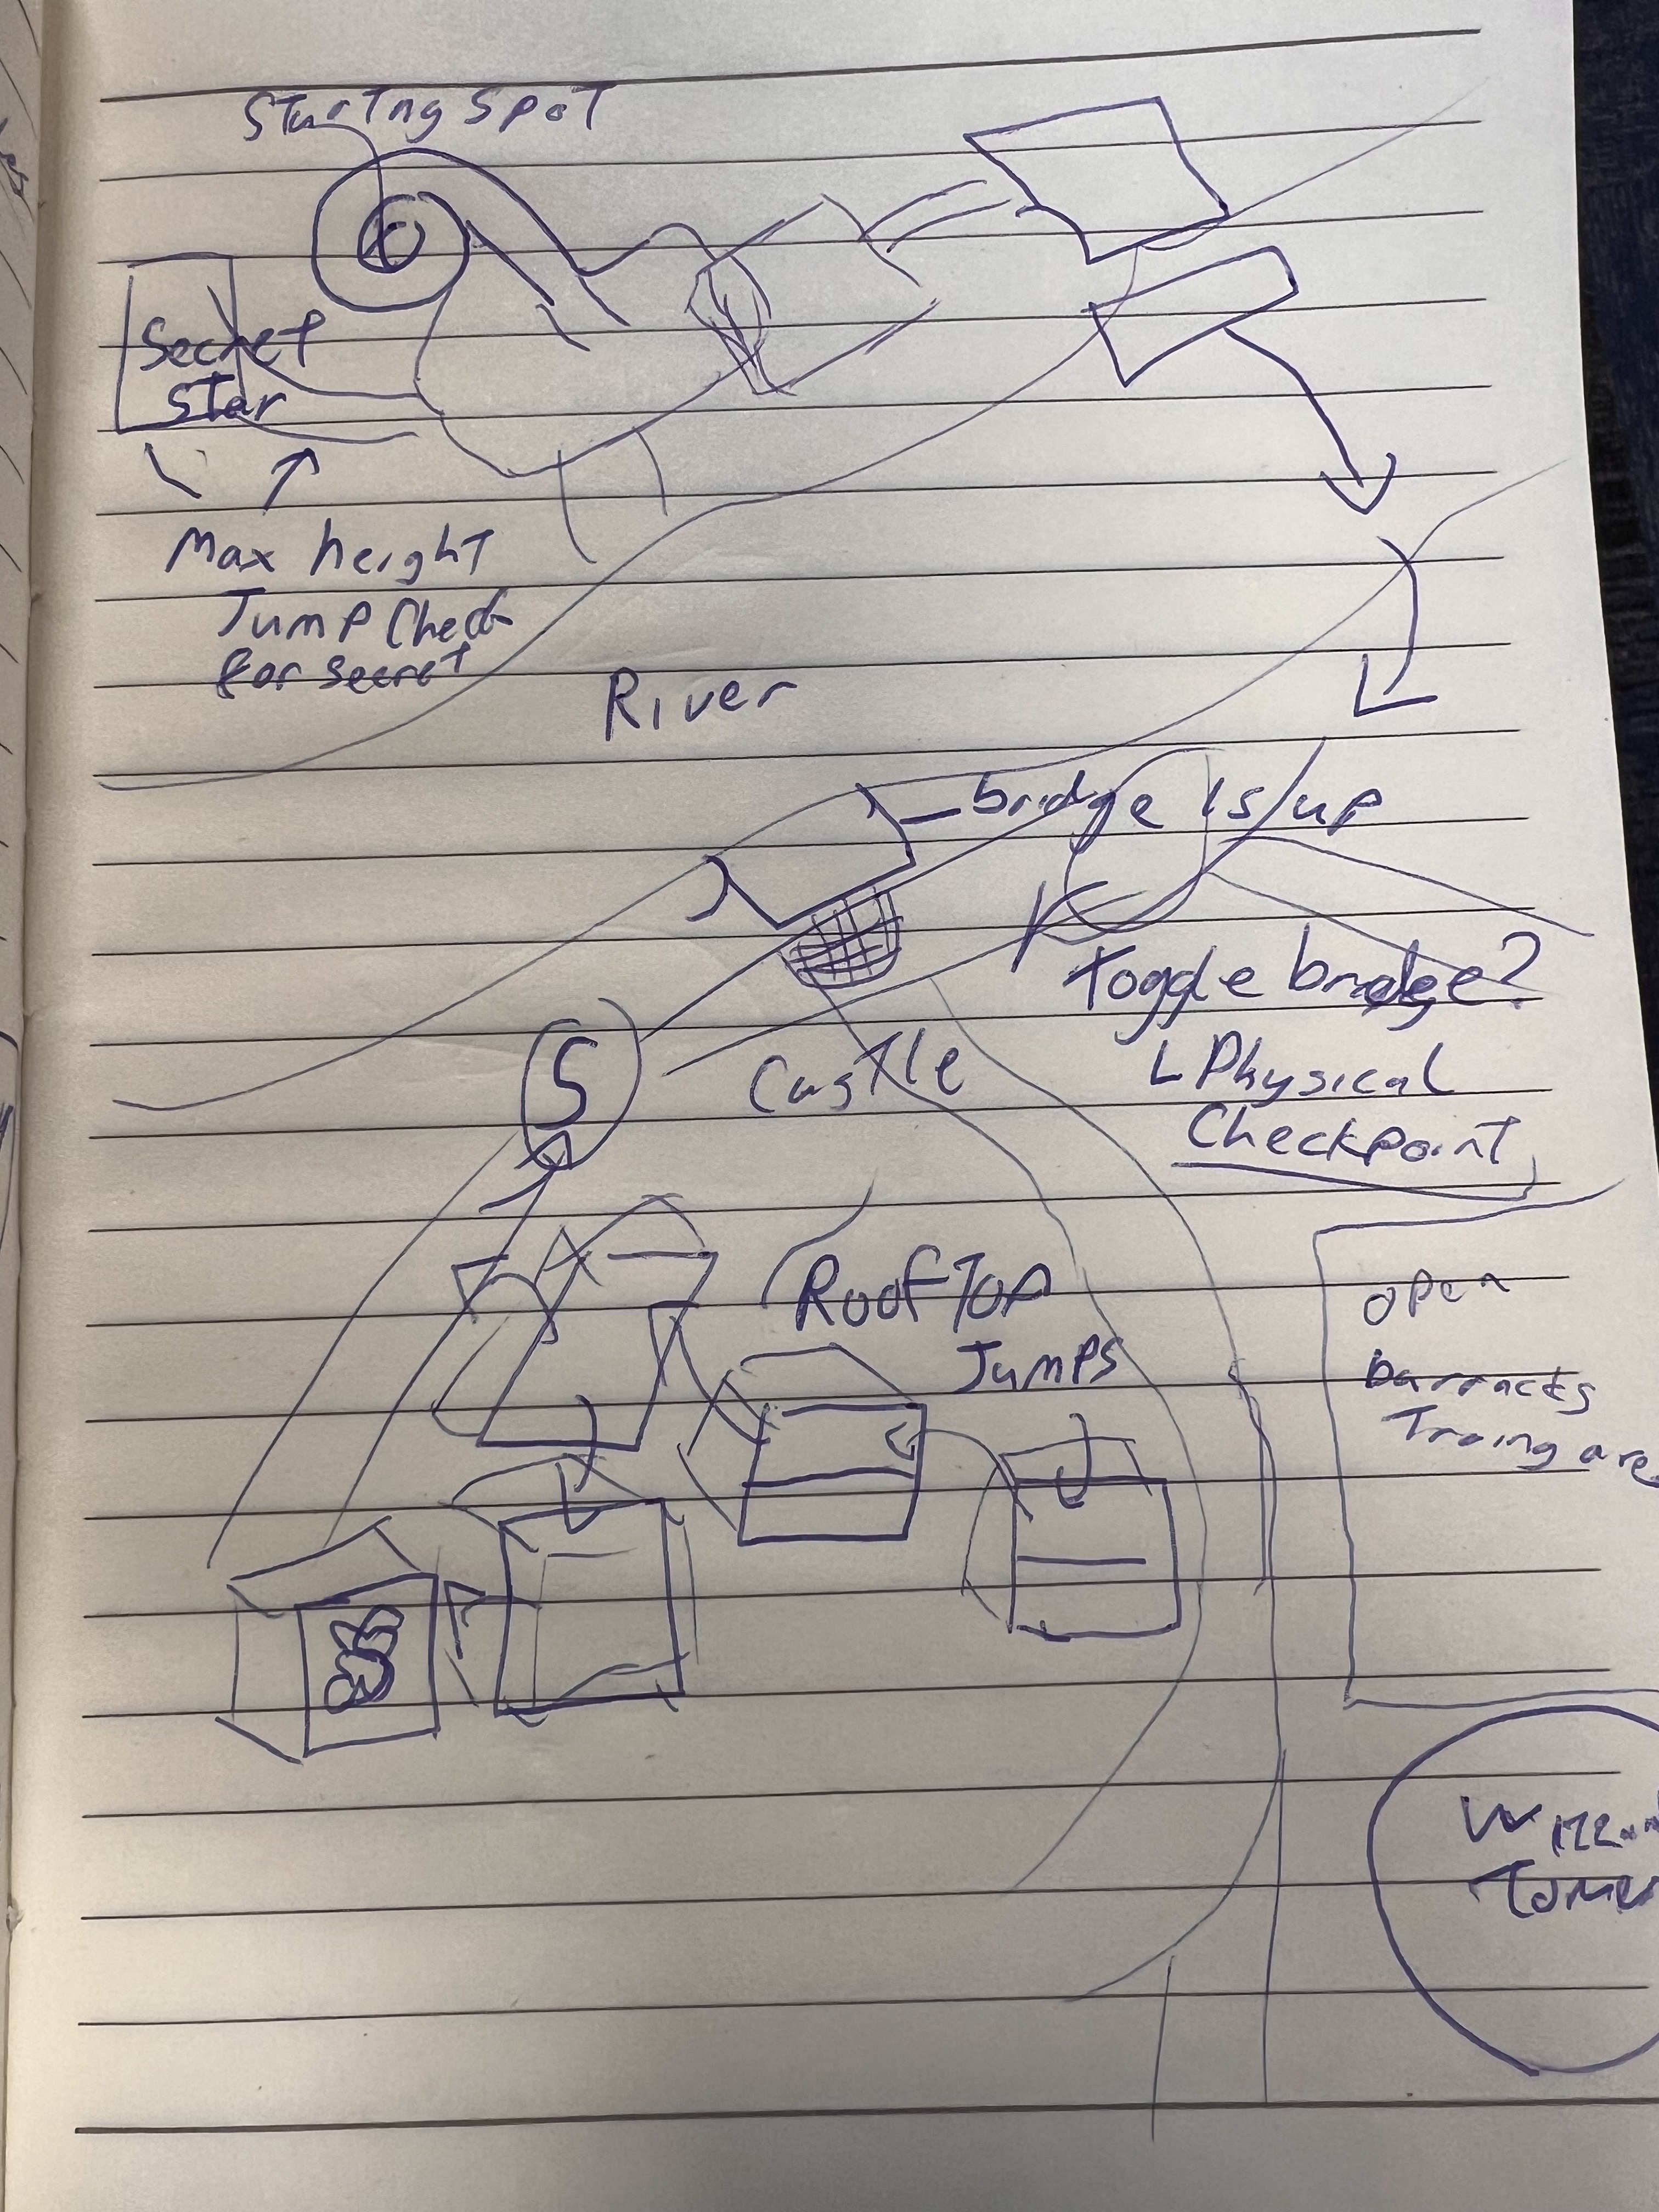 Starting Spot
Secret
Star
Max height
Jump Check
for secret
River
bridge is up
Toggle bridge?
L Physical
Checkpoint
S
Castle
Roof Top
Jumps
open
barracks
Traing are
Wizar
Tower